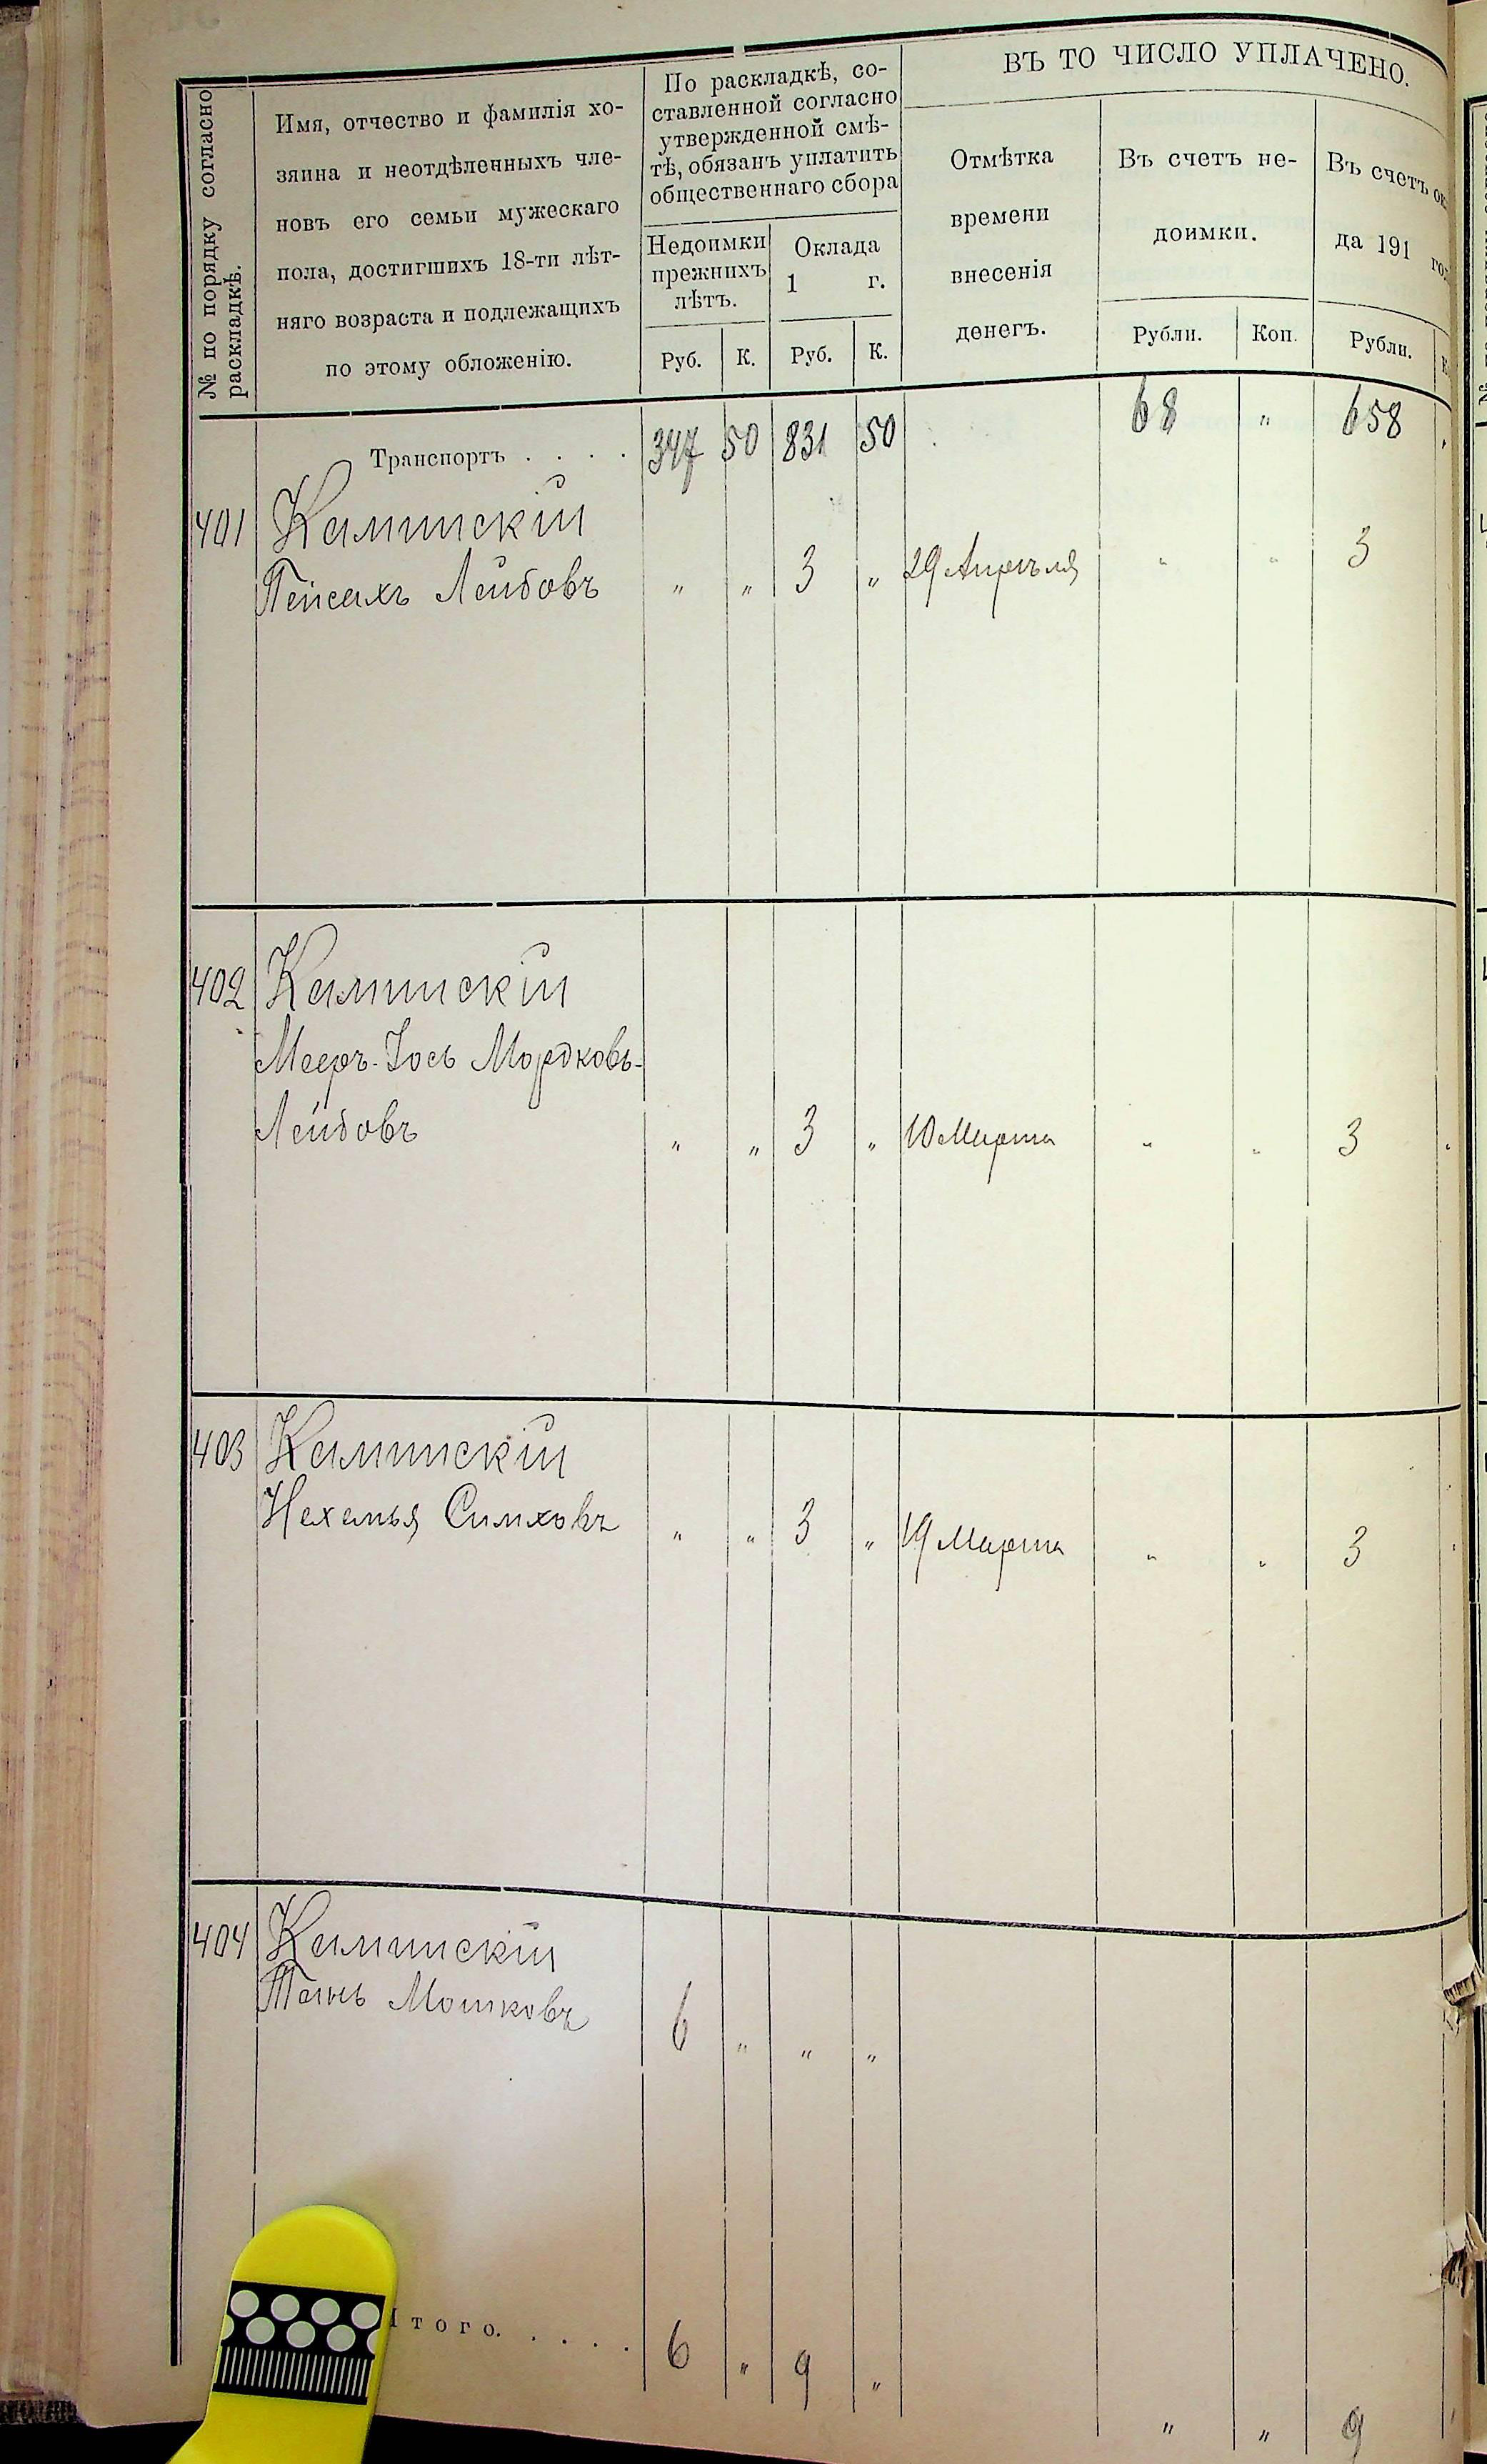 № по порядку согласно
раскладкѣ.
Имя, отчество и фамилія хо-
зяина и неотдѣленныхъ чле-
новъ его семьи мужескаго
пола, достигшихъ 18-ти лѣт-
няго возраста и подлежащихъ
по этому обложенію.
По раскладкѣ, со-
ставленной согласно
утвержденной смѣ-
тѣ, обязанъ уплатить
общественнаго сбора
Недоимки
прежнихъ
лѣтъ.
Оклада
1 г.
Руб. К. Руб. К.
ВЪ ТО ЧИСЛО УПЛАЧЕНО.
Отмѣтка
времени
внесенія
денегъ.
Въ счетъ не-
доимки.
Рубли. Коп.
Въ счетъ ок
да 191 го
Рубли. К
Транспортъ . . . . 347 50 831 50 68 „ 658
401 Каминскій
Пейсахъ Лейбовъ „ „ 3 „ 29 Апрѣля „ „ 3
402 Каминскій
Мееръ-Іось Мордковъ-
Лейбовъ „ „ 3 „ 10 Марта „ „ 3
403 Каминскій
Нехемья Симховъ „ „ 3 „ 19 Марта „ „ 3
404 Каминскій
Мошковъ 6 „ „ „
Итого. . . . . 6 „ 9 „ „ „ 9